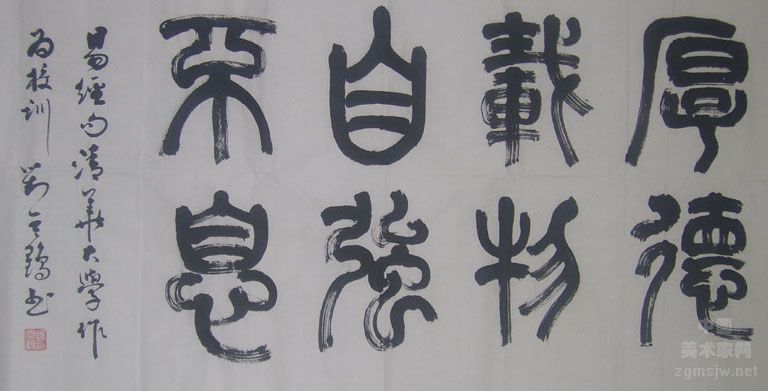 厚德
載物
自強
不息
易經句清華大學作
為校训
中国
美术家网
zgmsjw.net